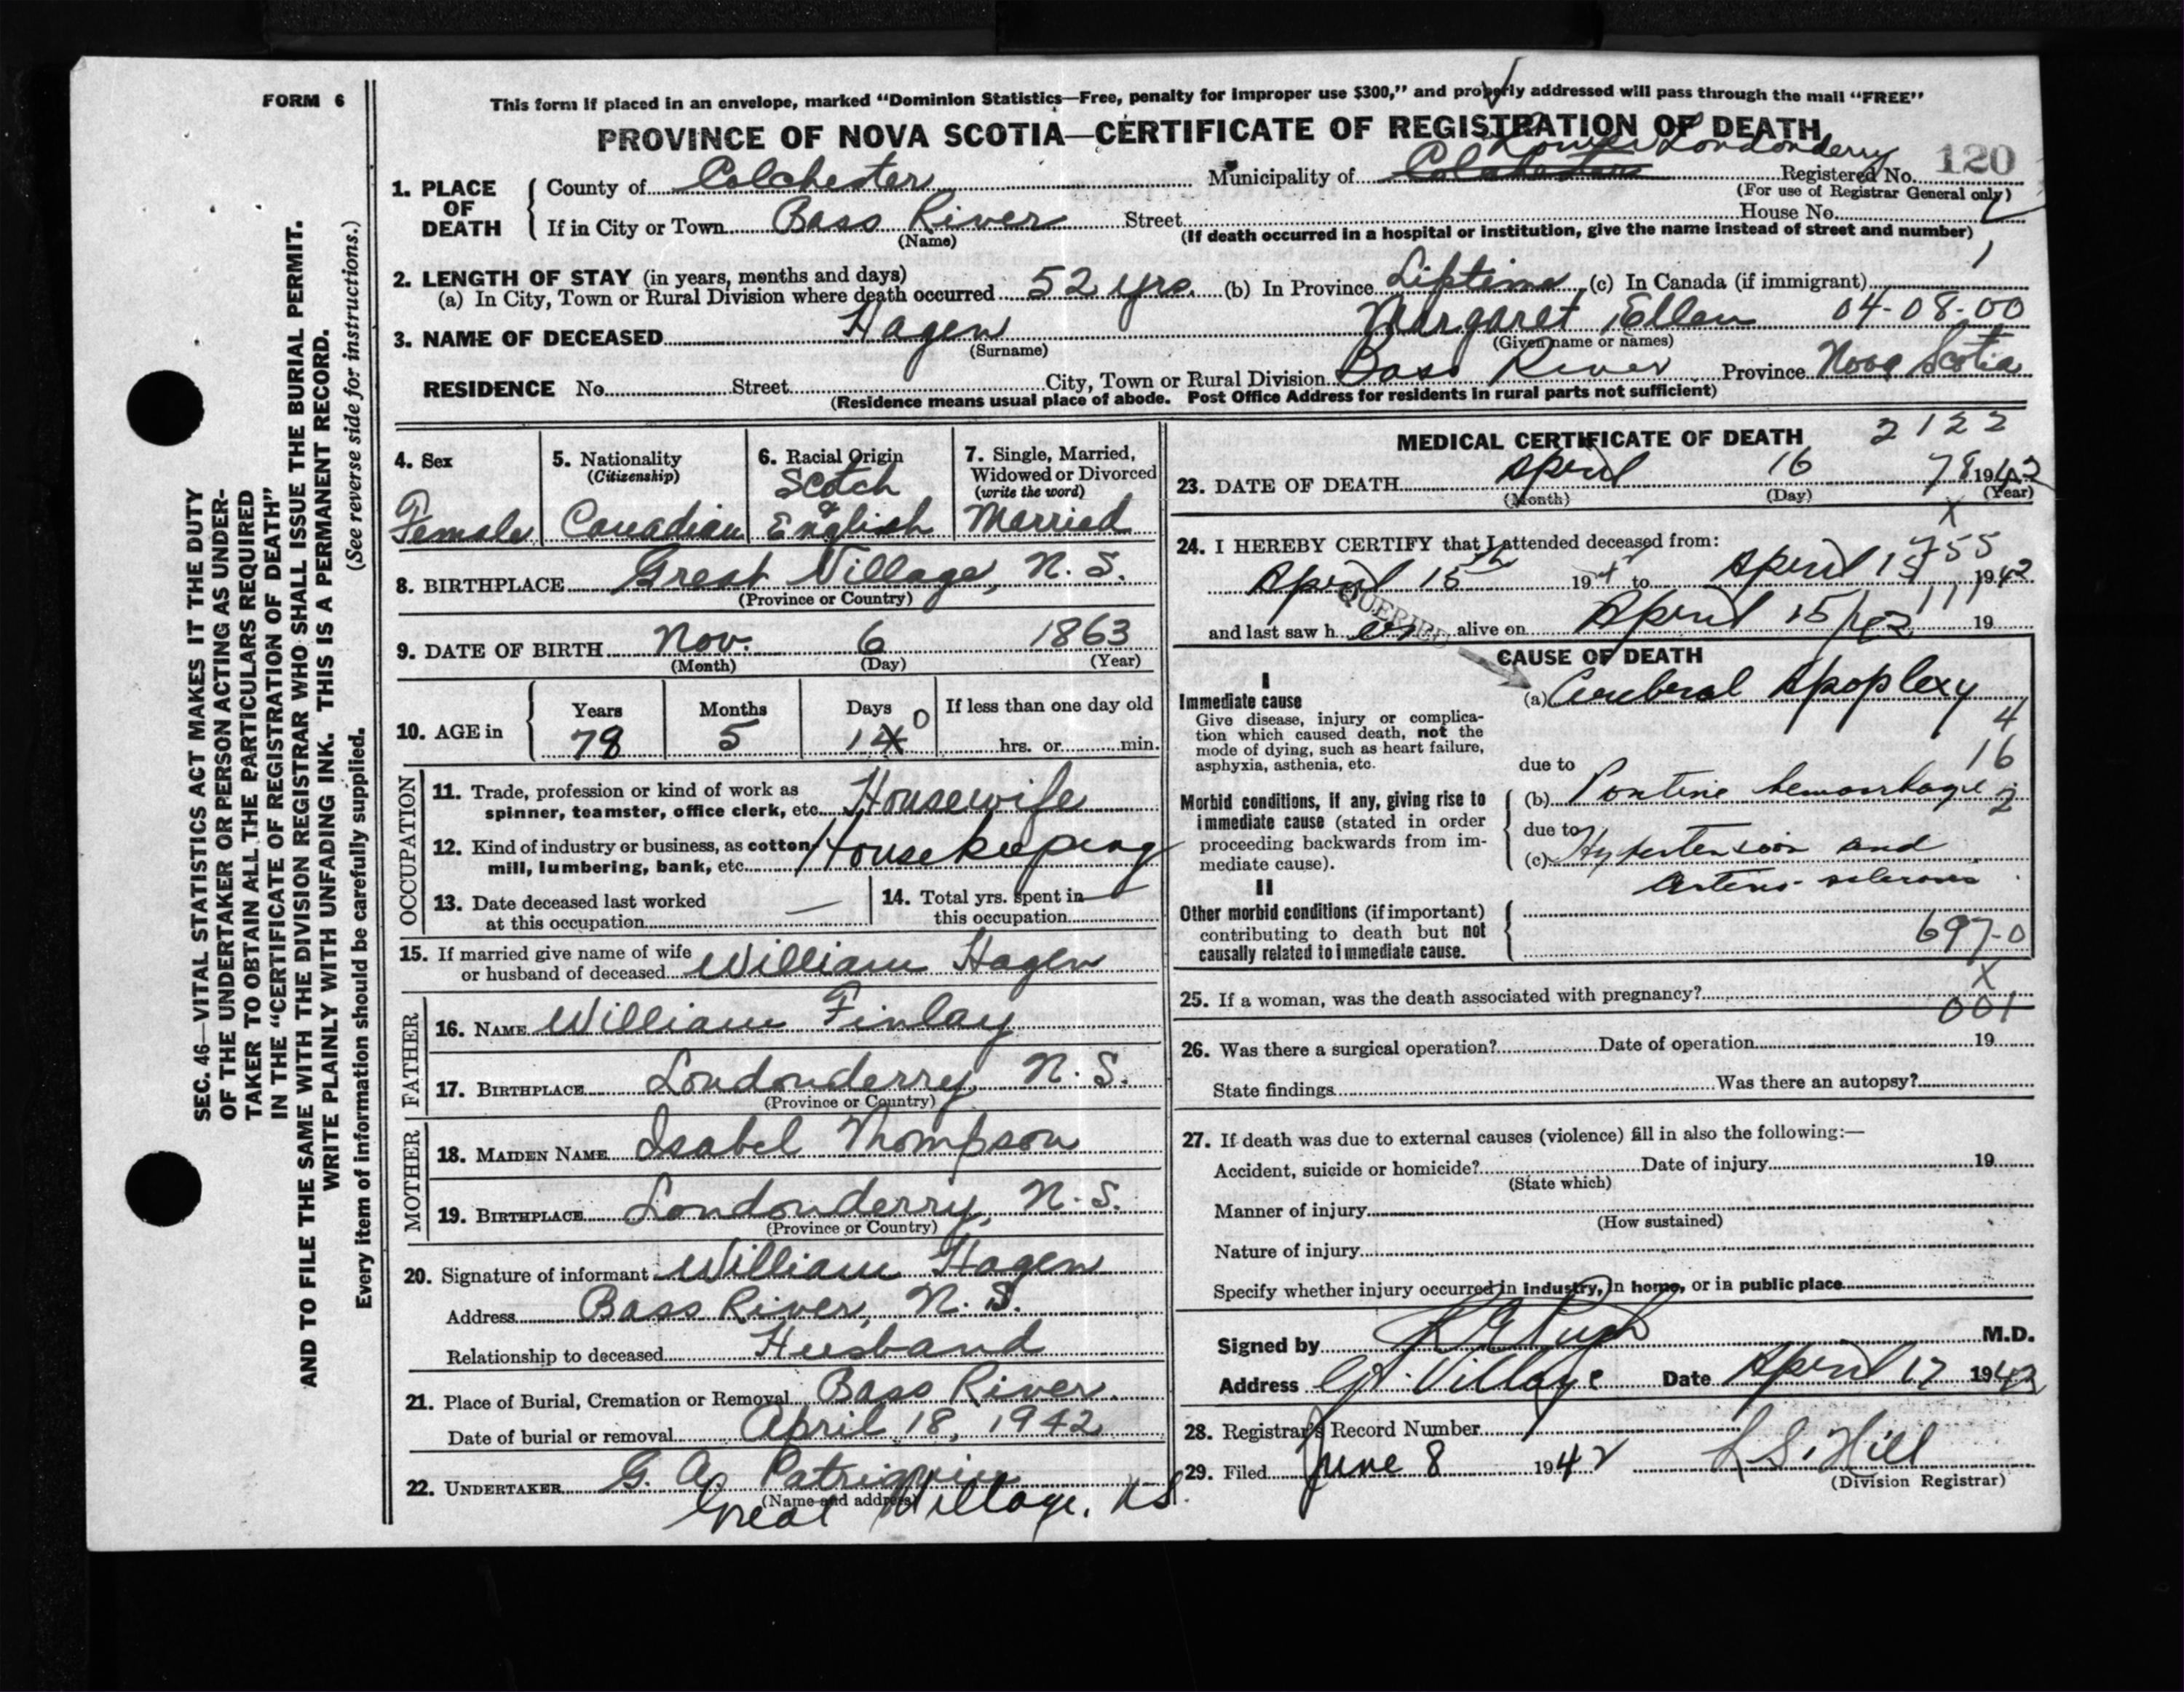 FORM 6
This form if placed in an envelope, marked “Dominion Statistics—Free, penalty for improper use $300,” and properly addressed will pass through the mail “FREE”
PROVINCE OF NOVA SCOTIA—CERTIFICATE OF REGISTRATION OF DEATH
Londonderry
1. PLACE OF DEATH County of Colchester Municipality of Registered No. 120
(For use of Registrar General only)
If in City or Town Bass River Street House No.
(Name) (If death occurred in a hospital or institution, give the name instead of street and number)
2. LENGTH OF STAY (in years, months and days)
(a) In City, Town or Rural Division where death occurred 52 yrs. (b) In Province Liftime (c) In Canada (if immigrant)
3. NAME OF DECEASED Hagen Margaret Ellen 04-08-00
(Surname) (Given name or names)
RESIDENCE No. Street City, Town or Rural Division Bass River Province Nova Scotia
(Residence means usual place of abode. Post Office Address for residents in rural parts not sufficient)
4. Sex Female
5. Nationality (Citizenship) Canadian
6. Racial Origin Scotch & English
7. Single, Married, Widowed or Divorced (write the word) Married
8. BIRTHPLACE Great Village, N.S.
(Province or Country)
9. DATE OF BIRTH Nov. 6 1863
(Month) (Day) (Year)
10. AGE in Years 78 Months 5 Days 10 If less than one day old hrs. or min.
OCCUPATION
11. Trade, profession or kind of work as spinner, teamster, office clerk, etc. Housewife
12. Kind of industry or business, as cotton mill, lumbering, bank, etc. Housekeeping
13. Date deceased last worked at this occupation —
14. Total yrs. spent in this occupation
15. If married give name of wife or husband of deceased William Hagen
FATHER
16. NAME William Finlay
17. BIRTHPLACE Londonderry, N.S.
(Province or Country)
MOTHER
18. MAIDEN NAME Isabel Thompson
19. BIRTHPLACE Londonderry, N.S.
(Province or Country)
20. Signature of informant William Hagen
Address Bass River, N.S.
Relationship to deceased Husband
21. Place of Burial, Cremation or Removal Bass River
Date of burial or removal April 18, 1942
22. UNDERTAKER G. A.
(Name and address)
Great Village, N.S.
MEDICAL CERTIFICATE OF DEATH 2122
23. DATE OF DEATH April 16 78 1942
(Month) (Day) (Year)
X
24. I HEREBY CERTIFY that I attended deceased from:
755
April 15th 19 to April 15 1942
111
and last saw her alive on April 15/42 19
QUERIED
CAUSE OF DEATH
I
Immediate cause
Give disease, injury or complication which caused death, not the mode of dying, such as heart failure, asphyxia, asthenia, etc.
(a) Cerebral Apoplexy
4
16
2
due to
Morbid conditions, if any, giving rise to immediate cause (stated in order proceeding backwards from immediate cause).
(b) Pontine hemorrhage
due to
(c) Hypertension and
Arterio-sclerosis
II
Other morbid conditions (if important) contributing to death but not causally related to immediate cause.
697-0
X
25. If a woman, was the death associated with pregnancy?
001
26. Was there a surgical operation? Date of operation 19
State findings Was there an autopsy?
27. If death was due to external causes (violence) fill in also the following:—
Accident, suicide or homicide? Date of injury 19
(State which)
Manner of injury
(How sustained)
Nature of injury
Specify whether injury occurred in industry, in home, or in public place
Signed by M.D.
Address Gt. Village Date April 17 1942
28. Registrar's Record Number
29. Filed June 8 1942 L S. Hill
(Division Registrar)
SEC. 46—VITAL STATISTICS ACT MAKES IT THE DUTY
OF THE UNDERTAKER OR PERSON ACTING AS UNDER-
TAKER TO OBTAIN ALL THE PARTICULARS REQUIRED
IN THE “CERTIFICATE OF REGISTRATION OF DEATH”
AND TO FILE THE SAME WITH THE DIVISION REGISTRAR WHO SHALL ISSUE THE BURIAL PERMIT.
WRITE PLAINLY WITH UNFADING INK. THIS IS A PERMANENT RECORD.
Every item of information should be carefully supplied. (See reverse side for instructions.)